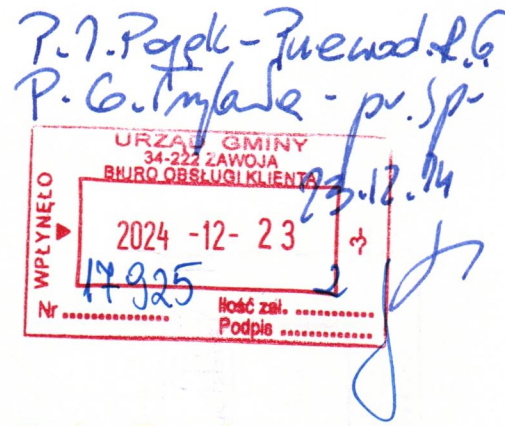 P. J. Pająk - Przewod. R.G
P. G. - pr. spr
URZĄD GMINY
34-222 ZAWOJA
BIURO OBSŁUGI KLIENTA
23.12.24
WPŁYNĘŁO
2024 -12- 23
-3-
Nr 17925
Ilość zał. 2
Podpis